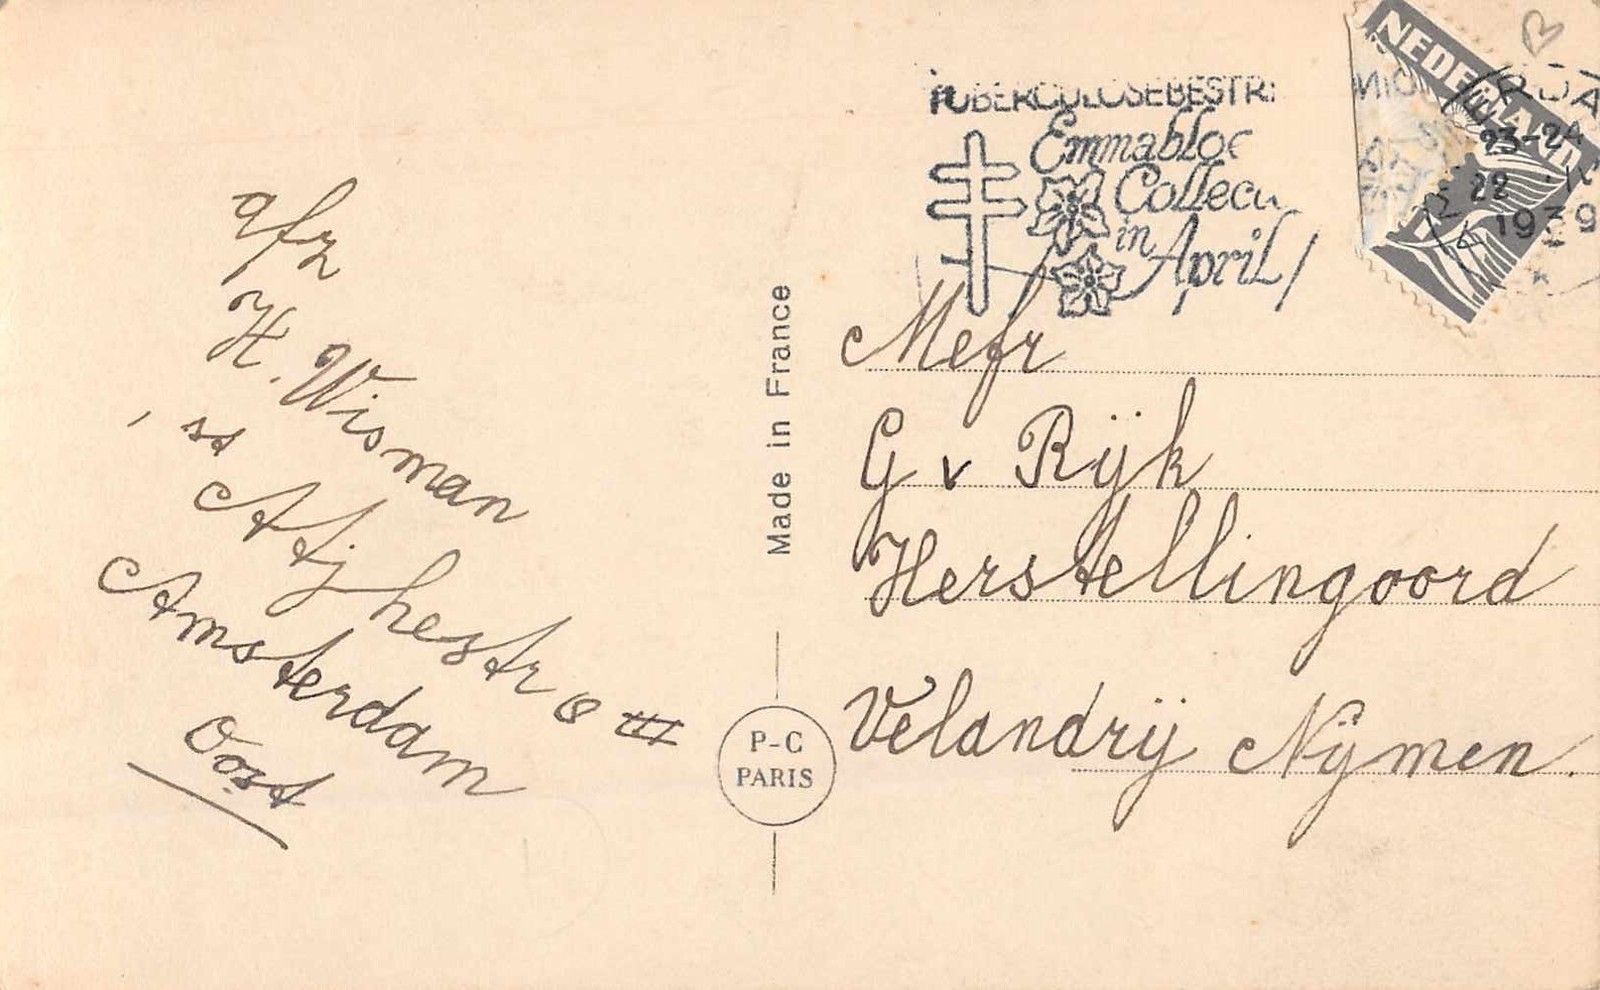 afz
H. Wisman
Atjehestr 8 III
Amsterdam
Oost
Made in France
P-C
PARIS
TUBERCULOSEBESTRI
Emmabloe
Collec
in
April
NEDERLAND
23-24
22
1939
Mefr
G v Rijk
Herstellingoord
Velandrij Nijmen.